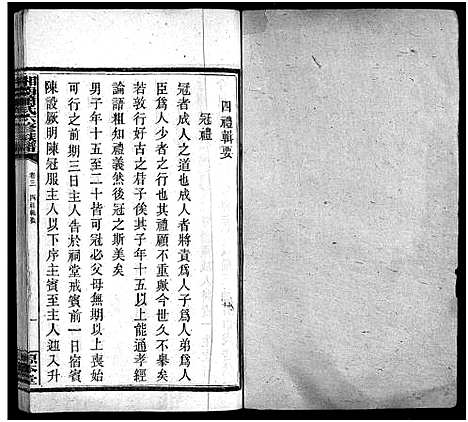 四禮輯要
冠禮
冠者成人之道也成人者將責為人子為人弟為人
臣為人少者之行也其禮顧不重歟今世久不舉矣
若敦行好古之君子俟其子年十五以上能通孝經
論語粗知禮義然後冠之斯美矣
男子年十五至二十皆可冠必父母無期以上喪始
可行之前期三日主人告於祠堂戒賓前一日宿賓
陳設厥明陳冠服主人以下序主賓至主人迎入升
卷三
四禮輯要
一